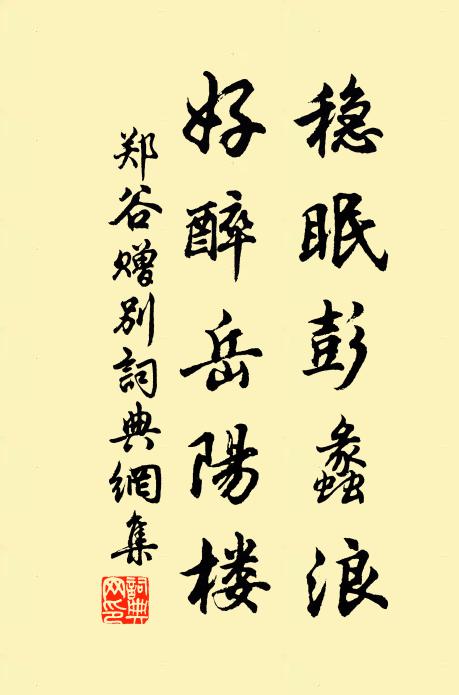 稳眠彭蠡浪
好醉岳陽楼
郑谷赠别詞典網集
詞典網印